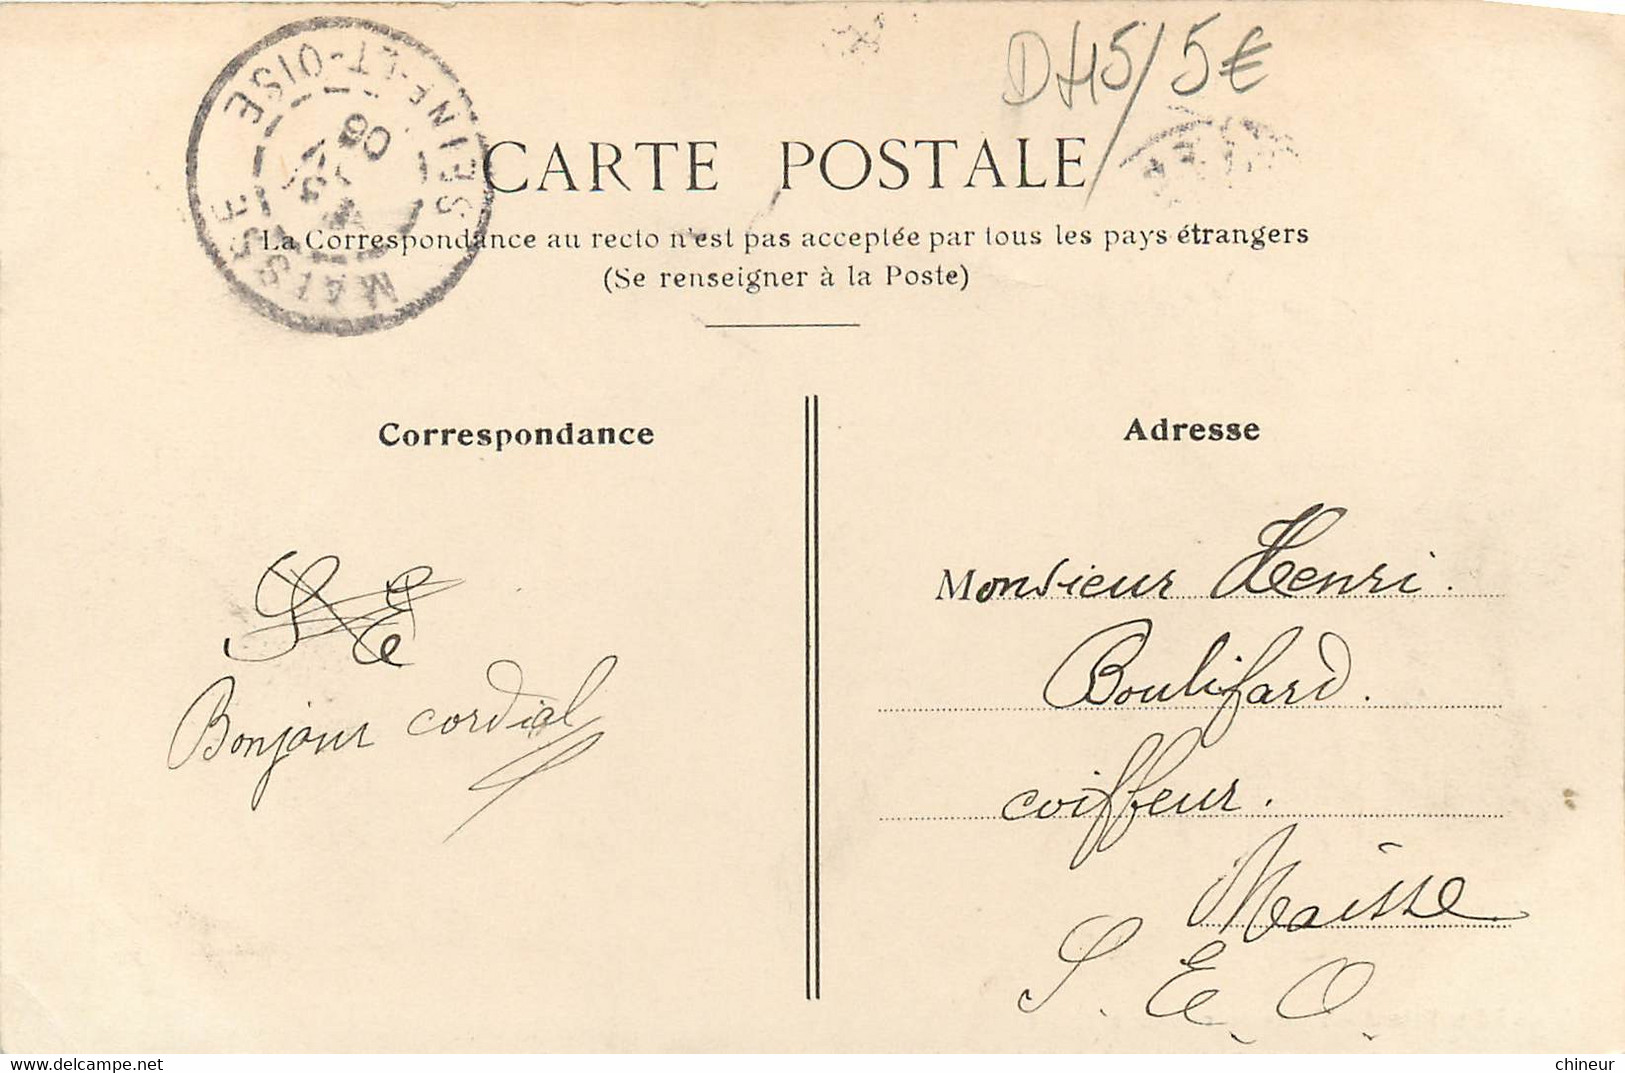 D45/5€
MAISSE
SEINE-ET-OISE
06
CARTE POSTALE
La Correspondance au recto n'est pas acceptée par tous les pays étrangers
(Se renseigner à la Poste)
Correspondance
Bonjour cordial
Adresse
Monsieur Henri.
Boulifard.
coiffeur.
Maisse
S. E. O.
delcampe.net
chineur